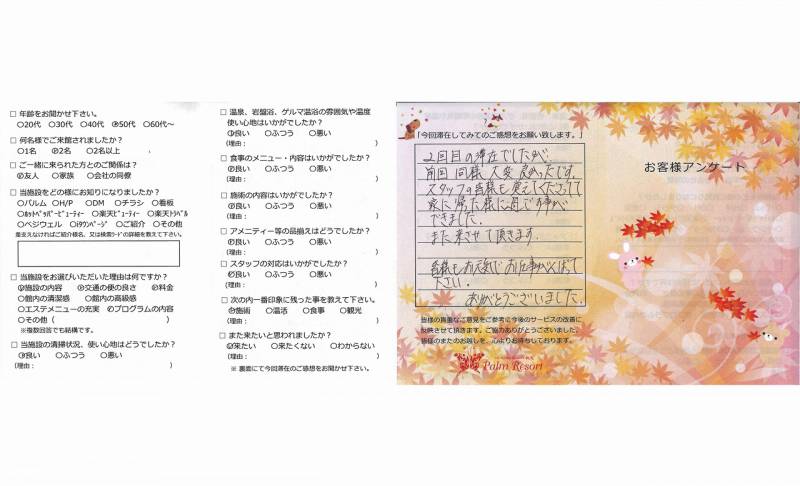 □ 年齢をお聞かせ下さい。
○20代 ○30代 ○40代 ○50代 ○60代～
□ 何名様でご来館されましたか？
○1名 ○2名 ○2名以上
□ ご一緒に来られた方とのご関係は？
○友人 ○家族 ○会社の同僚
□ 当施設をどの様にお知りになりましたか？
○パルム ○H/P ○DM ○チラシ ○看板
○ホットペッパービューティー ○楽天ビューティー ○楽天トラベル
○ベジウェル ○iタウンページ ○ご紹介 ○その他
差支えなければご紹介様名、又は検索ワードの詳細を教えて下さい。
□ 当施設をお選びいただいた理由は何ですか？
○施設の内容 ○交通の便の良さ ○料金
○館内の清潔感 ○館内の高級感
○エステメニューの充実 ○プログラムの内容
○その他（ ）
※複数回答でも結構です。
□ 当施設の清掃状況、使い心地はどうでしたか？
○良い ○ふつう ○悪い
(理由： )
□ 温泉、岩盤浴、ゲルマ温浴の雰囲気や温度
使い心地はいかがでしたか？
○良い ○ふつう ○悪い
(理由： )
□ 食事のメニュー・内容はいかがでしたか？
○良い ○ふつう ○悪い
(理由： )
□ 施術の内容はいかがでしたか？
○良い ○ふつう ○悪い
(理由： )
□ アメニティー等の品揃えはどうでしたか？
○良い ○ふつう ○悪い
(理由： )
□ スタッフの対応はいかがでしたか？
○良い ○ふつう ○悪い
(理由： )
□ 次の内一番印象に残った事を教えて下さい。
○施術 ○温活 ○食事 ○観光
(理由： )
□ また来たいと思われましたか？
○来たい ○来たくない ○わからない
(理由： )
※ 裏面にて今回滞在のご感想をお聞かせ下さい。
「今回滞在してみてのご感想をお願い致します。」
2回目の滞在でしたが、
前回同様 大変良かったです。
スタッフの皆様も覚えてくださって
家に帰った様に過ごす事が
できました。
また来させて頂きます。
皆様もお元気でお仕事がんばって
下さい。
ありがとうございました。
皆様の貴重なご意見をご参考に今後のサービスの改善に
反映させて頂きます。ご協力ありがとうございました。
皆様のまたのお越しを、心よりお待ちしております。
Palm Resort
お客様アンケート